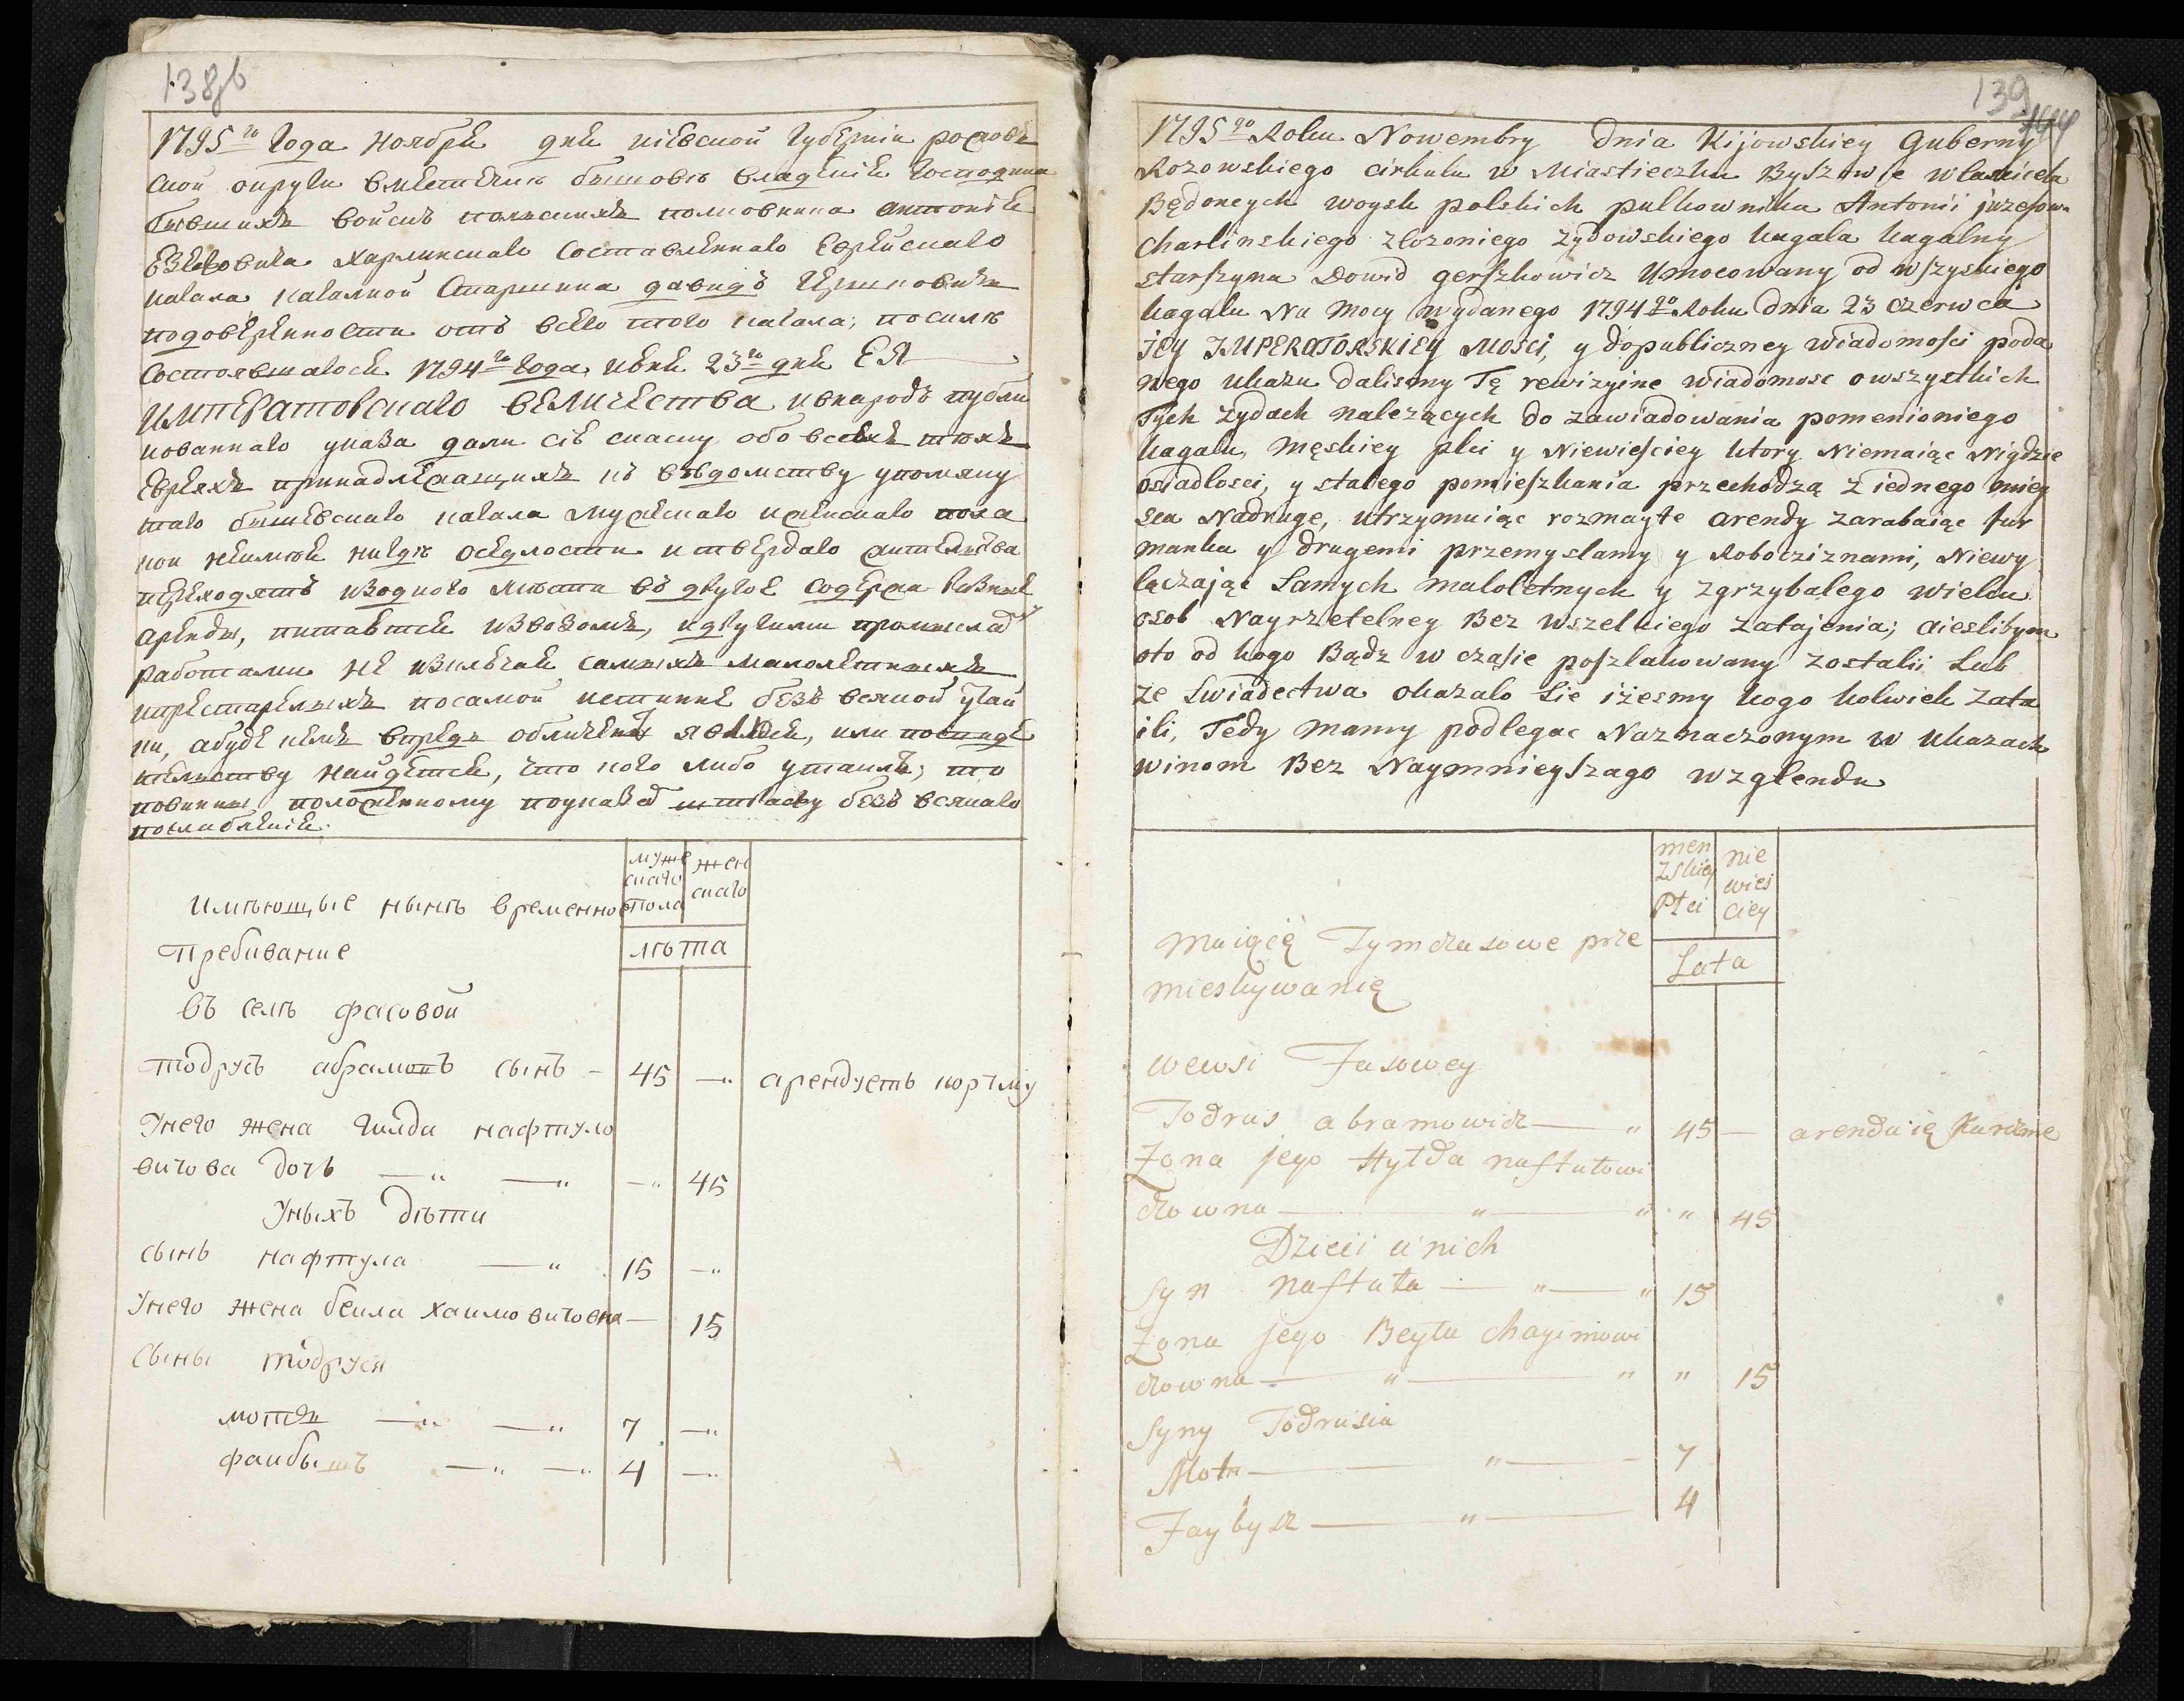 138об
1795го Года ноября дня кіевской губерніи рожов
ской округи вместечке бышове владенія Господина
бывшихъ войскъ польскихъ полковника антонія
харлинскаго Составленнаго Еврейскаго
кагала кагалной Старшина давидъ Гершковичъ
подоверенности отъ всего того кагала, посиле
Состоявшагося 1794го года июня 23го дня ЕЯ
ИМПЕРАТОРСКАГО ВЕЛИЧЕСТВА ивнародъ публи
кованнаго указа дали сію скаску обо всехъ техъ
евреяхъ принадлежащихъ къ вѣдомству упомяну
таго бышевскаго кагала мужескаго иженскаго пола
кои неимея нигде оседлости итвердаго жителства
переходятъ изодного места въ другое содержа разные
аренды, питаются извозомъ, идругими промысла
работами не изключая самыхъ малолетныхъ
ипрестарелыхъ посамой истинне безъ всякой утай
ки, абуде кемъ впредь обличены явимся, или
найдется, что кого либо утаилъ, то
повинны положенному поуказа штрафу безъ всякаго
имѣющые нынѣ временное
Пребивание
муже скаго пола
жен скаго
лѣта
въ селѣ фасовой
тодрусь абрамовъ сынъ – 45 —„ арендуеть корчму
Унего жена гилда нафтуло
вичова дочъ —„ —„ —„ 45
Уныхъ дѣти
сынъ нафтула —„ 15 —„
Унего жена беила хаимовичовна — 15
Сыны тодруся
мотя —„ —„ 7 —„
фаибышъ —„ —„ 4 —„
139
1795go Roku Nowembry dnia Kijowskiey Guberny
Rozowskiego cirkulu w Miastieczku Byszowie wlasiciela
Będoncych woysk polskich pulkownika Antonii juzefow
Charlinskiego zlozoniego zydowskiego kagala kagalny
starszyna Dowid gerszkowicz Umocowany od wszyskiego
kagalu Na mocy wydanego 1794go Roku dnia 23 czerwca
jey IMPERATORSKIEY Mosci, y dopubliczney wiadomosci poda
nego ukazu dalismy Tę rewizyine wiadomosc owszystkich
Tych zydach nalezących do zawiadowania pomenioniego
kagalu, męskiey plci y Niewiesciey ktory Niemaiąc Nigdzie
osiadlosci, y stalego pomieszkania przechodzą z iednego miey
sca Nadruge, utrzymuiąc rozmayte arendy zarabaiąc fur
manka y drugemi przemyslamy y Robocziznami, Niewy
lączając Samych maloletnych y zgrzybalego wieku
osob Nayrzetelney Bez wszelkiego zatajenia; aieslibym
oto od kogo Bądz w czasie poszlakowany zostalii Lub
ze Swiadectwa okazalo Sie iżesmy kogo kolwiek zata
ili, Tedy mamy podlegac Naznaczonym w Ukazach
winom Bez Naymnieyszago wzglendu
men zskiey Plci
nie wies ciey
Maiącę Tymczasowe prze
mieskywanię
Lata
wewsi Fasowey
Todrus abramowicz — „ 45 — arenduię Karczme
Zona jego Hylda naftulowi
czowna — „ — „ „ 45
Dzieci u nich
Syn naftula — „ — „ 15
Zona jego Beyla chayimowi
czowna — „ — „ „ 15
Syny Todrusia
Motia — „ — 7
Faybysz — „ — 4